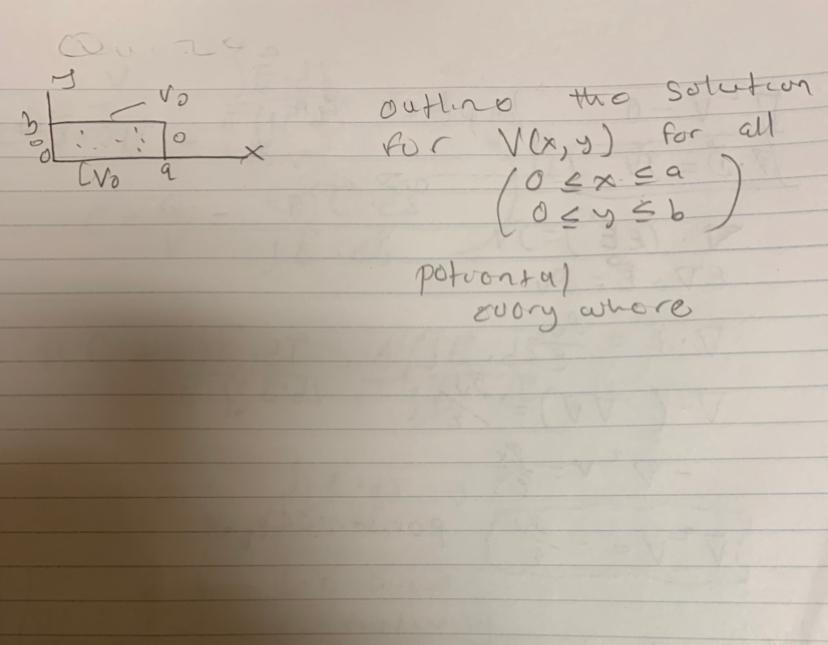 y
V0
b
0
0
0
x
[V0
a
outline the solution
for V(x,y) for all
(0 ≤ x ≤ a
0 ≤ y ≤ b)
potential
every where